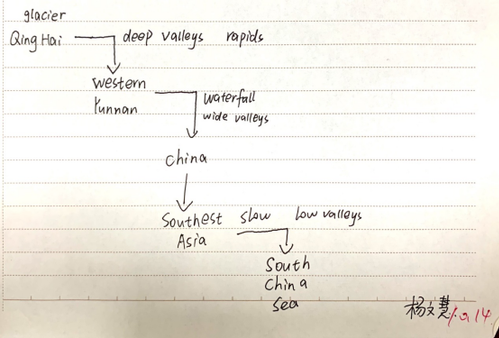 glacier
QingHai deep valleys rapids
western
Yunnan
waterfall
wide valleys
china
Southest slow low valleys
Asia
South
china
sea
杨文慧